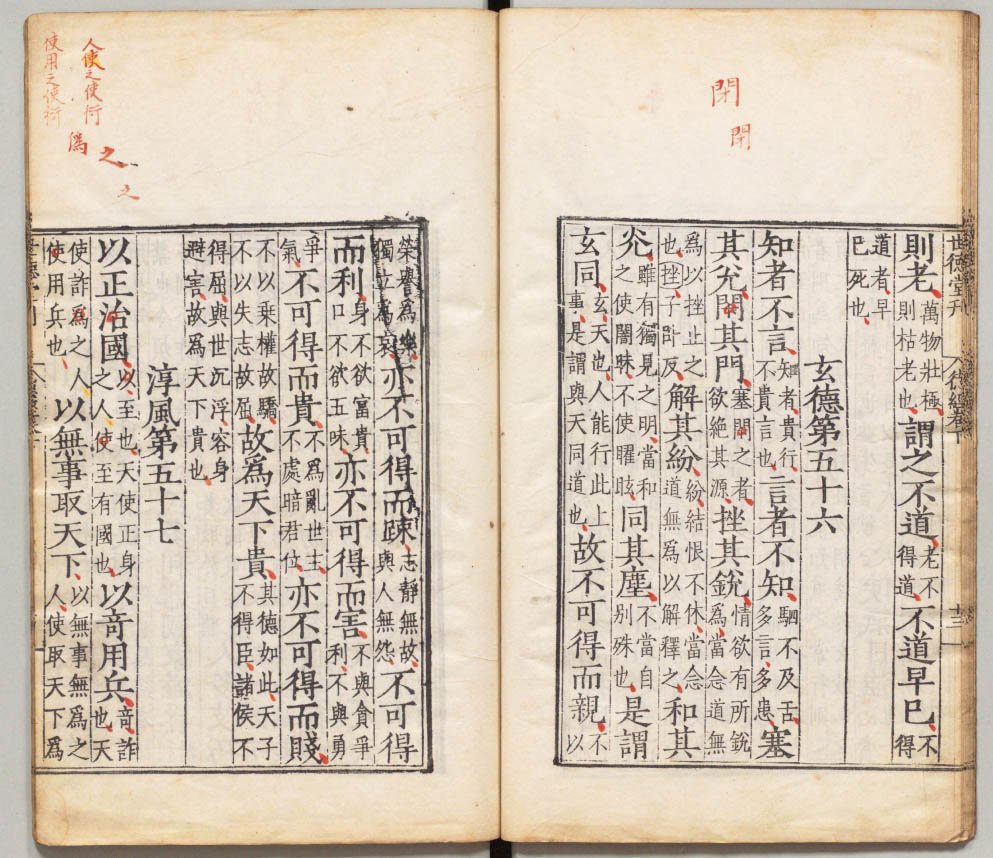 閉
閇
世德堂刊
則老萬物壯極則枯老也謂之不道老不得道不道早已不得
道者早已死也
玄德第五十六
知者不言知者貴行不貴言也言者不知駟不及舌多言多患塞
其兊閉其門塞閉之者欲絕其源挫其銳情欲有所銳爲當念道無
爲以挫止之也挫子卧反解其紛紛結恨不休當念道無爲以解釋之和其
光雖有獨見之明當和之使闇昧不使曜眩同其塵不當自别殊也是謂
玄同玄天也人能行此上事是謂與天同道也故不可得而親不以
人使之使衍
使用之使衍
爲
之
之
榮譽爲樂獨立爲哀亦不可得而踈志靜無故與人無怨不可得
而利身不欲富貴口不欲五味亦不可得而害不與貪爭利不與勇
爭氣不可得而貴不爲亂世主不處暗君位亦不可得而賤
不以乗權故驕不以失志故屈故爲天下貴其德如此天子不得臣諸侯不
得屈與世沉浮容身避害故爲天下貴也
淳風第五十七
以正治國以至也天使正身之人使至有國也以竒用兵竒詐也天
使詐爲之人使用兵也以無事取天下以無事無爲之人使取天下爲